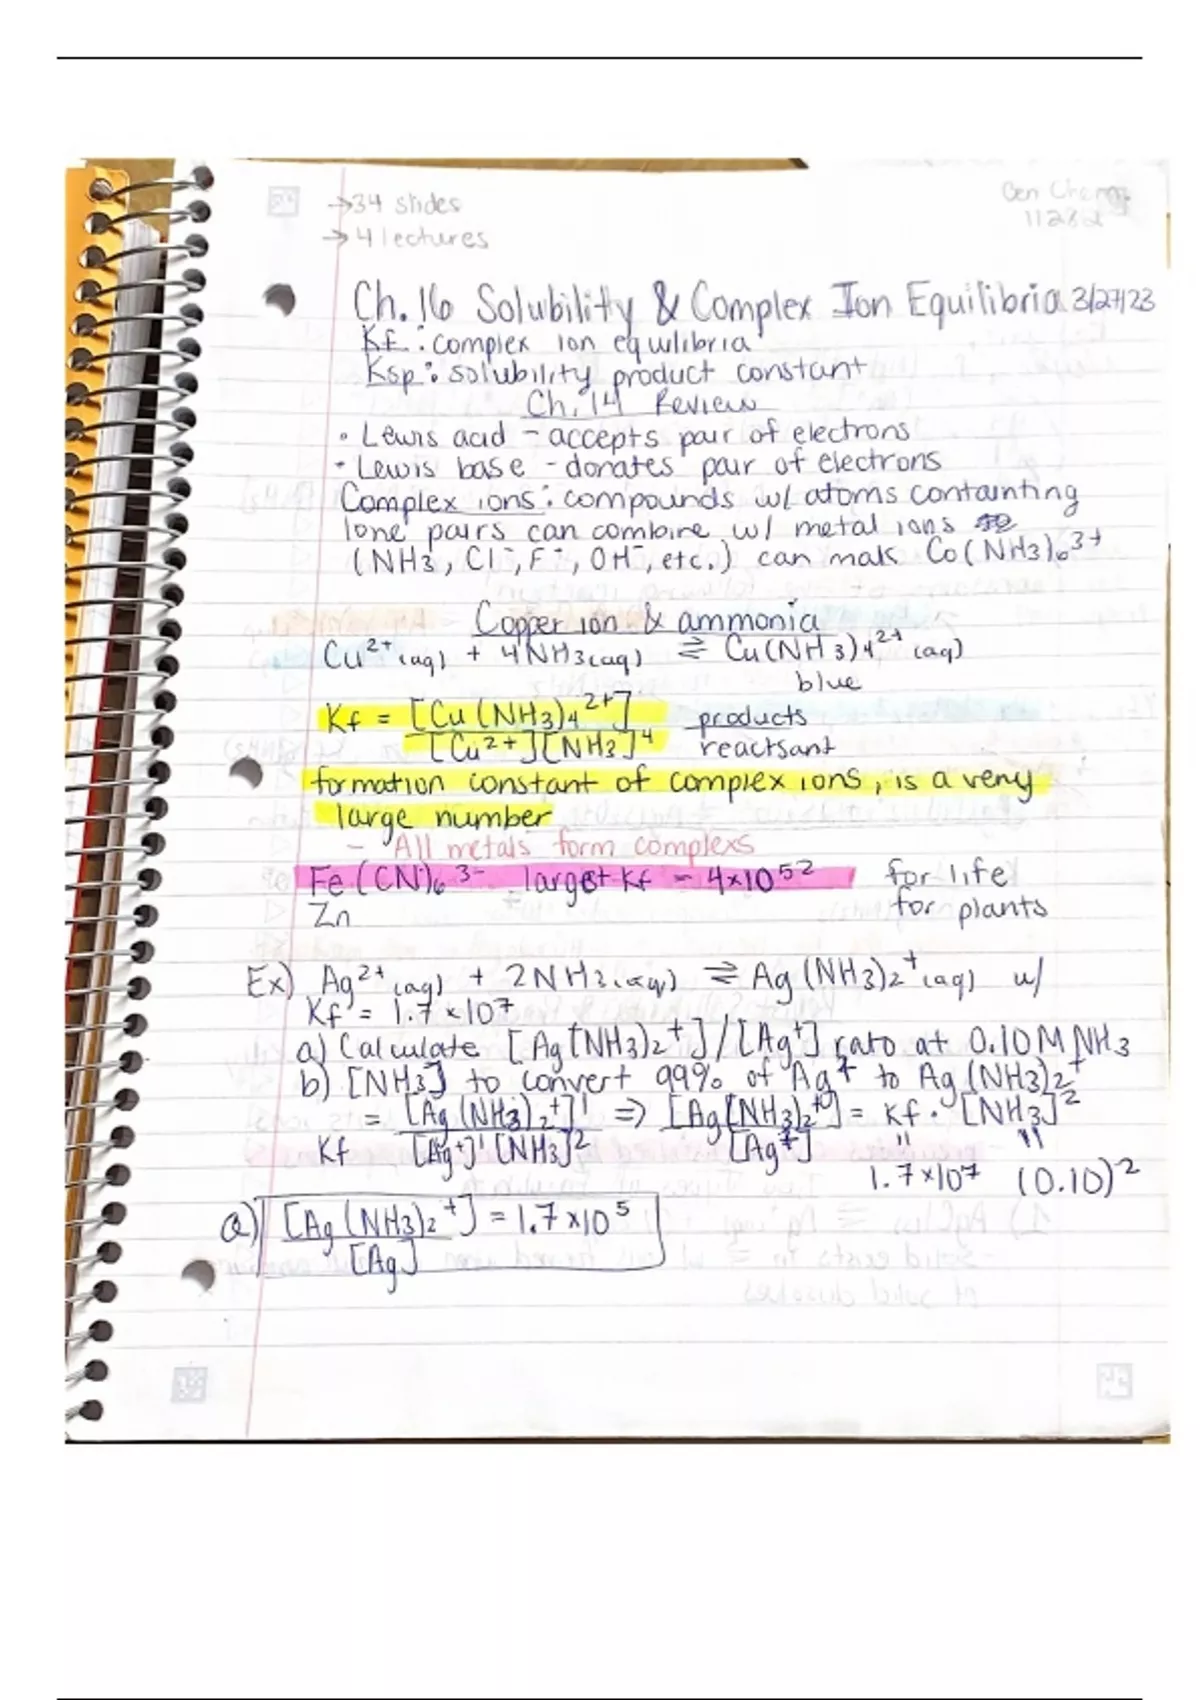 →34 slides
→4 lectures
Gen Chem
11232
Ch. 16 Solubility & Complex Ion Equilibria 3/27/23
Kf : complex ion equilibria
Ksp : solubility product constant
Ch. 14 Review
• Lewis acid - accepts pair of electrons
• Lewis base - donates pair of electrons
Complex ions : compounds w/ atoms containting
lone pairs can combine w/ metal ions
(NH3, Cl⁻, F⁻, OH⁻, etc.) can make Co(NH3)6³⁺
Copper ion & ammonia
Cu²⁺(aq) + 4NH3(aq) ⇌ Cu(NH3)4²⁺(aq)
blue
Kf = [Cu(NH3)4²⁺] products
[Cu²⁺][NH3]⁴ reactsant
formation constant of complex ions, is a very
large number
- All metals form complexs
Fe(CN)6³⁻ largest Kf - 4x10⁵² for life
Zn for plants
Ex) Ag²⁺(aq) + 2NH3(aq) ⇌ Ag(NH3)2⁺(aq) w/
Kf = 1.7 x 10⁷
a) Calculate [Ag(NH3)2⁺]/[Ag⁺] rato at 0.10M NH3
b) [NH3] to convert 99% of Ag⁺ to Ag(NH3)2⁺
= [Ag(NH3)2⁺]¹ ⇒ [Ag(NH3)2⁺] = Kf · [NH3]²
Kf [Ag⁺]¹[NH3]² [Ag⁺] " "
1.7x10⁷ (0.10)²
a) [Ag(NH3)2⁺] = 1.7x10⁵
[Ag]